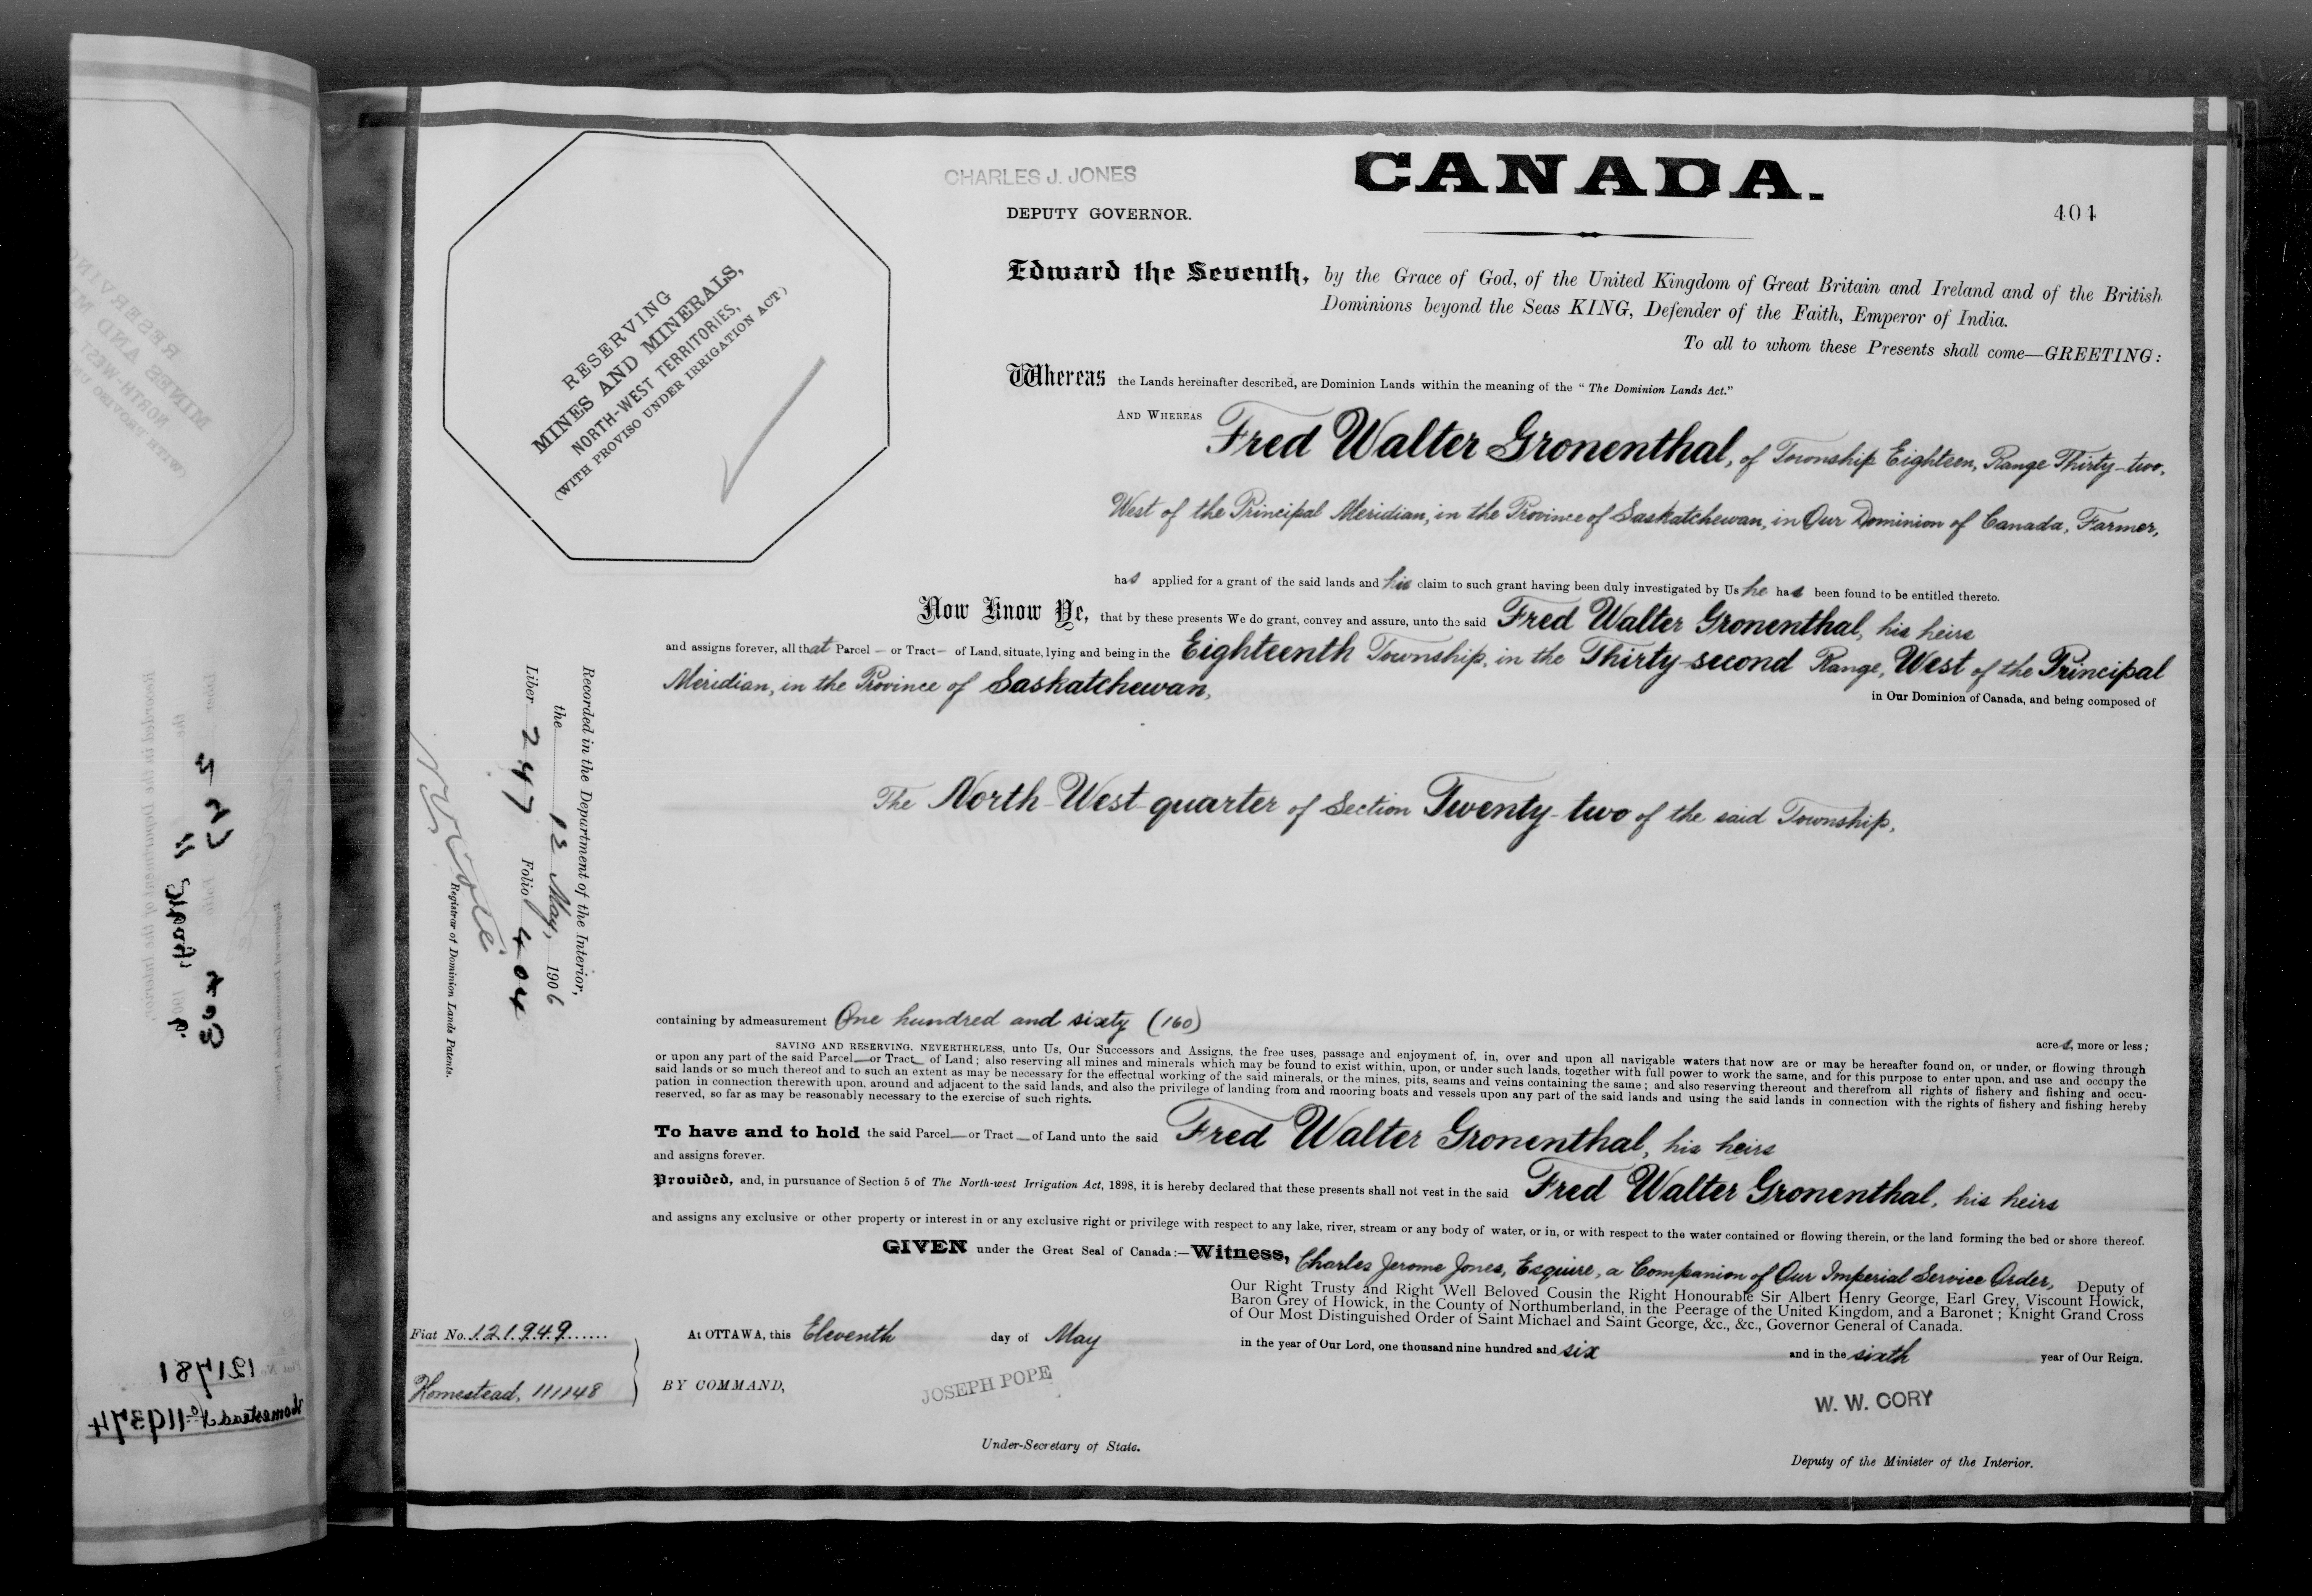 CHARLES J. JONES
DEPUTY GOVERNOR.
CANADA.
404
RESERVING
MINES AND MINERALS,
NORTH-WEST TERRITORIES,
(WITH PROVISO UNDER IRRIGATION ACT)
Edward the Seventh, by the Grace of God, of the United Kingdom of Great Britain and Ireland and of the British
Dominions beyond the Seas KING, Defender of the Faith, Emperor of India.
To all to whom these Presents shall come—GREETING:
Whereas the Lands hereinafter described, are Dominion Lands within the meaning of the "The Dominion Lands Act."
AND WHEREAS Fred Walter Gronenthal, of Township Eighteen, Range Thirty-two,
West of the Principal Meridian, in the Province of Saskatchewan, in Our Dominion of Canada, Farmer,
has applied for a grant of the said lands and his claim to such grant having been duly investigated by Us he has been found to be entitled thereto.
Now Know Ye, that by these presents We do grant, convey and assure, unto the said Fred Walter Gronenthal, his heirs
and assigns forever, all that Parcel — or Tract — of Land, situate, lying and being in the Eighteenth Township, in the Thirty-second Range, West of the Principal
Meridian, in the Province of Saskatchewan,
in Our Dominion of Canada, and being composed of
The North-West quarter of Section Twenty-two of the said Township,
Recorded in the Department of the Interior,
the 12 May, 1906
Liber 247 Folio 404
Registrar of Dominion Lands Patents.
containing by admeasurement One hundred and sixty (160)
acres, more or less;
SAVING AND RESERVING, NEVERTHELESS, unto Us, Our Successors and Assigns, the free uses, passage and enjoyment of, in, over and upon all navigable waters that now are or may be hereafter found on, or under, or flowing through
or upon any part of the said Parcel — or Tract — of Land; also reserving all mines and minerals which may be found to exist within, upon, or under such lands, together with full power to work the same, and for this purpose to enter upon, and use and occupy the
said lands or so much thereof and to such an extent as may be necessary for the effectual working of the said minerals, or the mines, pits, seams and veins containing the same; and also reserving thereout and therefrom all rights of fishery and fishing and occu-
pation in connection therewith upon, around and adjacent to the said lands, and also the privilege of landing from and mooring boats and vessels upon any part of the said lands and using the said lands in connection with the rights of fishery and fishing hereby
reserved, so far as may be reasonably necessary to the exercise of such rights.
To have and to hold the said Parcel — or Tract — of Land unto the said Fred Walter Gronenthal, his heirs
and assigns forever.
Provided, and, in pursuance of Section 5 of The North-west Irrigation Act, 1898, it is hereby declared that these presents shall not vest in the said Fred Walter Gronenthal, his heirs
and assigns any exclusive or other property or interest in or any exclusive right or privilege with respect to any lake, river, stream or any body of water, or in, or with respect to the water contained or flowing therein, or the land forming the bed or shore thereof.
GIVEN under the Great Seal of Canada:—Witness, Charles Jerome Jones, Esquire, a Companion of Our Imperial Service Order, Deputy of
Our Right Trusty and Right Well Beloved Cousin the Right Honourable Sir Albert Henry George, Earl Grey, Viscount Howick,
Baron Grey of Howick, in the County of Northumberland, in the Peerage of the United Kingdom, and a Baronet; Knight Grand Cross
of Our Most Distinguished Order of Saint Michael and Saint George, &c., &c., Governor General of Canada.
At OTTAWA, this Eleventh day of May in the year of Our Lord, one thousand nine hundred and six and in the sixth year of Our Reign.
Fiat No. 121949
Homestead, 111148
BY COMMAND,
JOSEPH POPE
Under-Secretary of State.
W. W. CORY
Deputy of the Minister of the Interior.
121781
Homestead No 119374